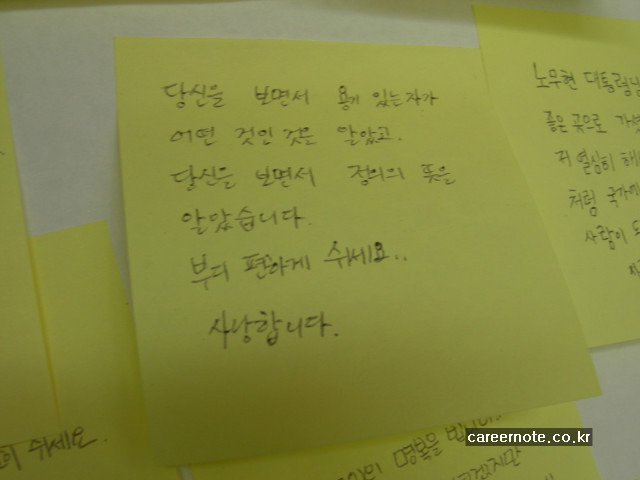 당신을 보면서 용기 있는자가
어떤 것인 것을 알았고.
당신을 보면서 정의의 뜻을
알았습니다.
부디 편하게 쉬세요..
사랑합니다.
노무현 대통령님
좋은 곳으로 가셨
저 열심히 해
처럼 국가에
사람이 되
쉬세요.
명복을 빕니다
careernote.co.kr